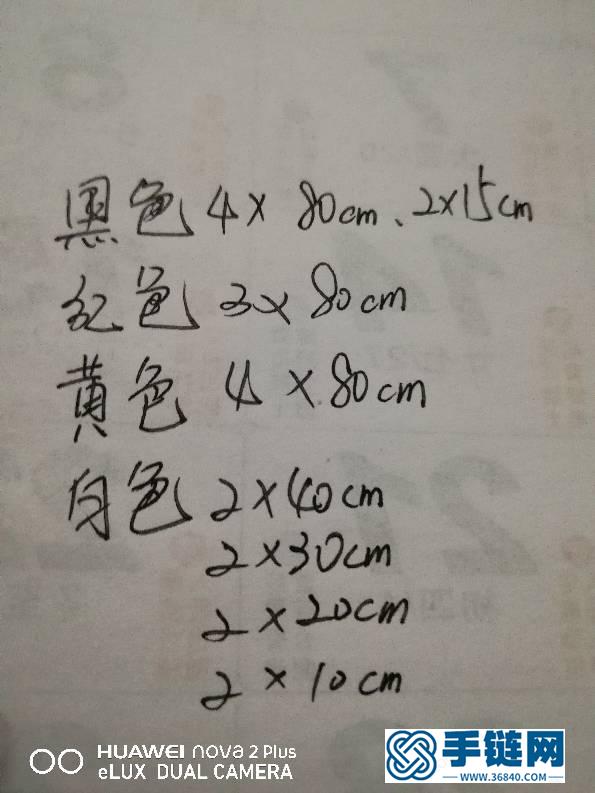 黑色 4 × 80cm、2×15cm
红色 3× 80cm
黄色 4 × 80cm
白色 2 × 40cm
2 × 30cm
2 × 20cm
2 × 10cm
HUAWEI nova 2 Plus
eLUX DUAL CAMERA
手链网
WWW.36840.COM